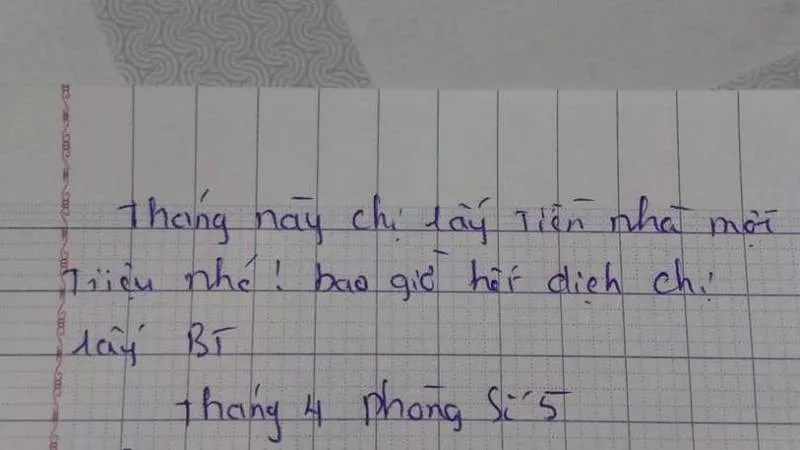 tháng này chị lấy tiền nhà một
triệu nhé! bao giờ hết dịch chị
lấy BT
tháng 4 phòng Số 5